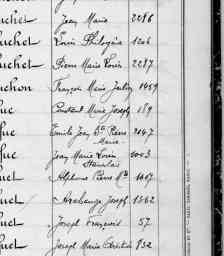 uches Jean Marie 2086
uchet Louis Philogène 1206
uchet Pierre Marie Louis 2287
uchon François Marie Julien 1459
uc Constant Marie Joseph 159
uc Emile Jean Bte Pierre 2047
Marie
uc Jean Marie Louis 1003
Stanislas
uet Alphonse Pierre Mie 1407
uet Archange Joseph 1362
uet Joseph François 57
uet Joseph Marie 832